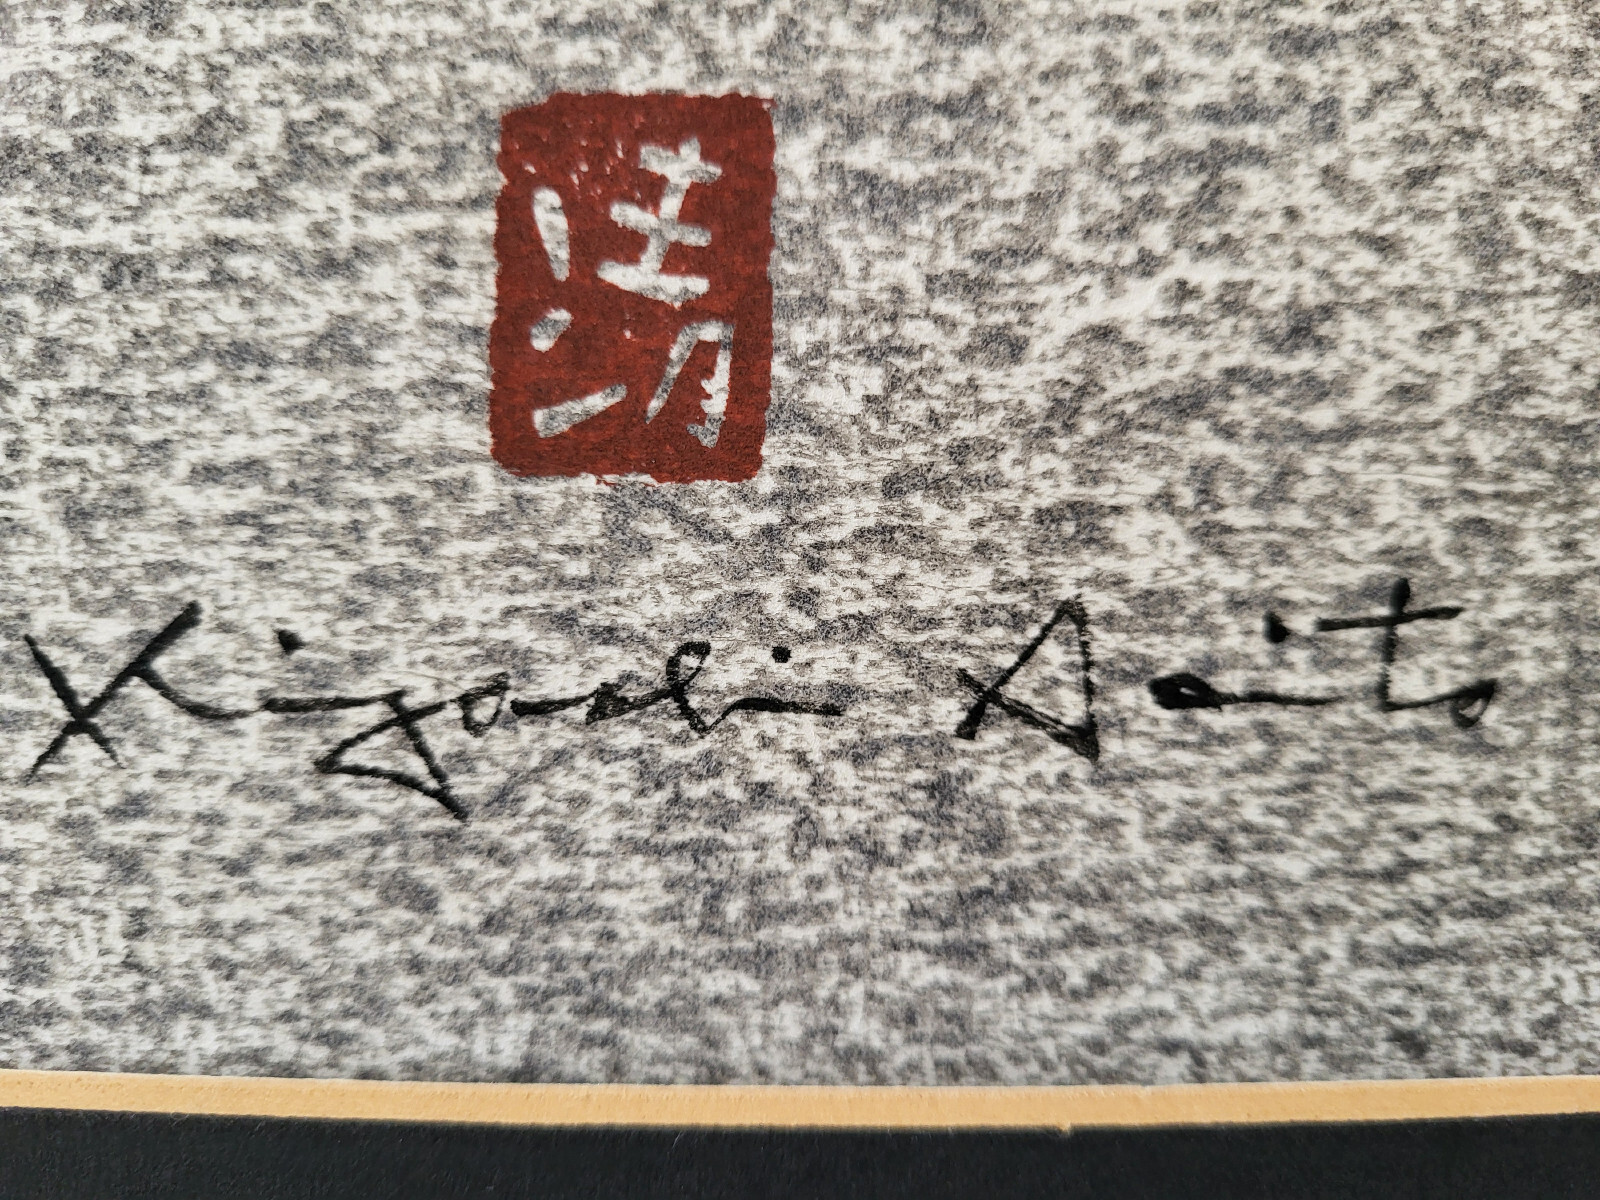 清
Kiyoshi Saito